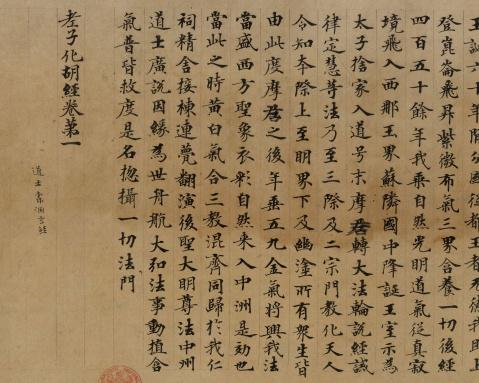 王誠六十年間分國從都王者无德我即上
登崑崙飛昇紫微布氣三界含養一切後經
四百五十餘年我乘自然光明道氣從真寂
境飛入西那王界蘇隣國中降誕王室示為
太子捨家入道号末摩尼轉大法輪說經誡
律定慧等法乃至三際及二宗門教化天人
令知本際上至明界下及幽塗所有衆生皆
由此度摩尼之後年垂五九金氣將興我法
當盛西方聖象衣彩自然來入中洲是効也
當此之時黃白氣合三教混齊同歸於我仁
祠精舍接棟連甍翻演後聖大明尊法中州
道士廣說因緣為世舟航大弘法事動植含
氣普皆救度是名捴攝一切法門
老子化胡經卷第一
道士索洞玄經